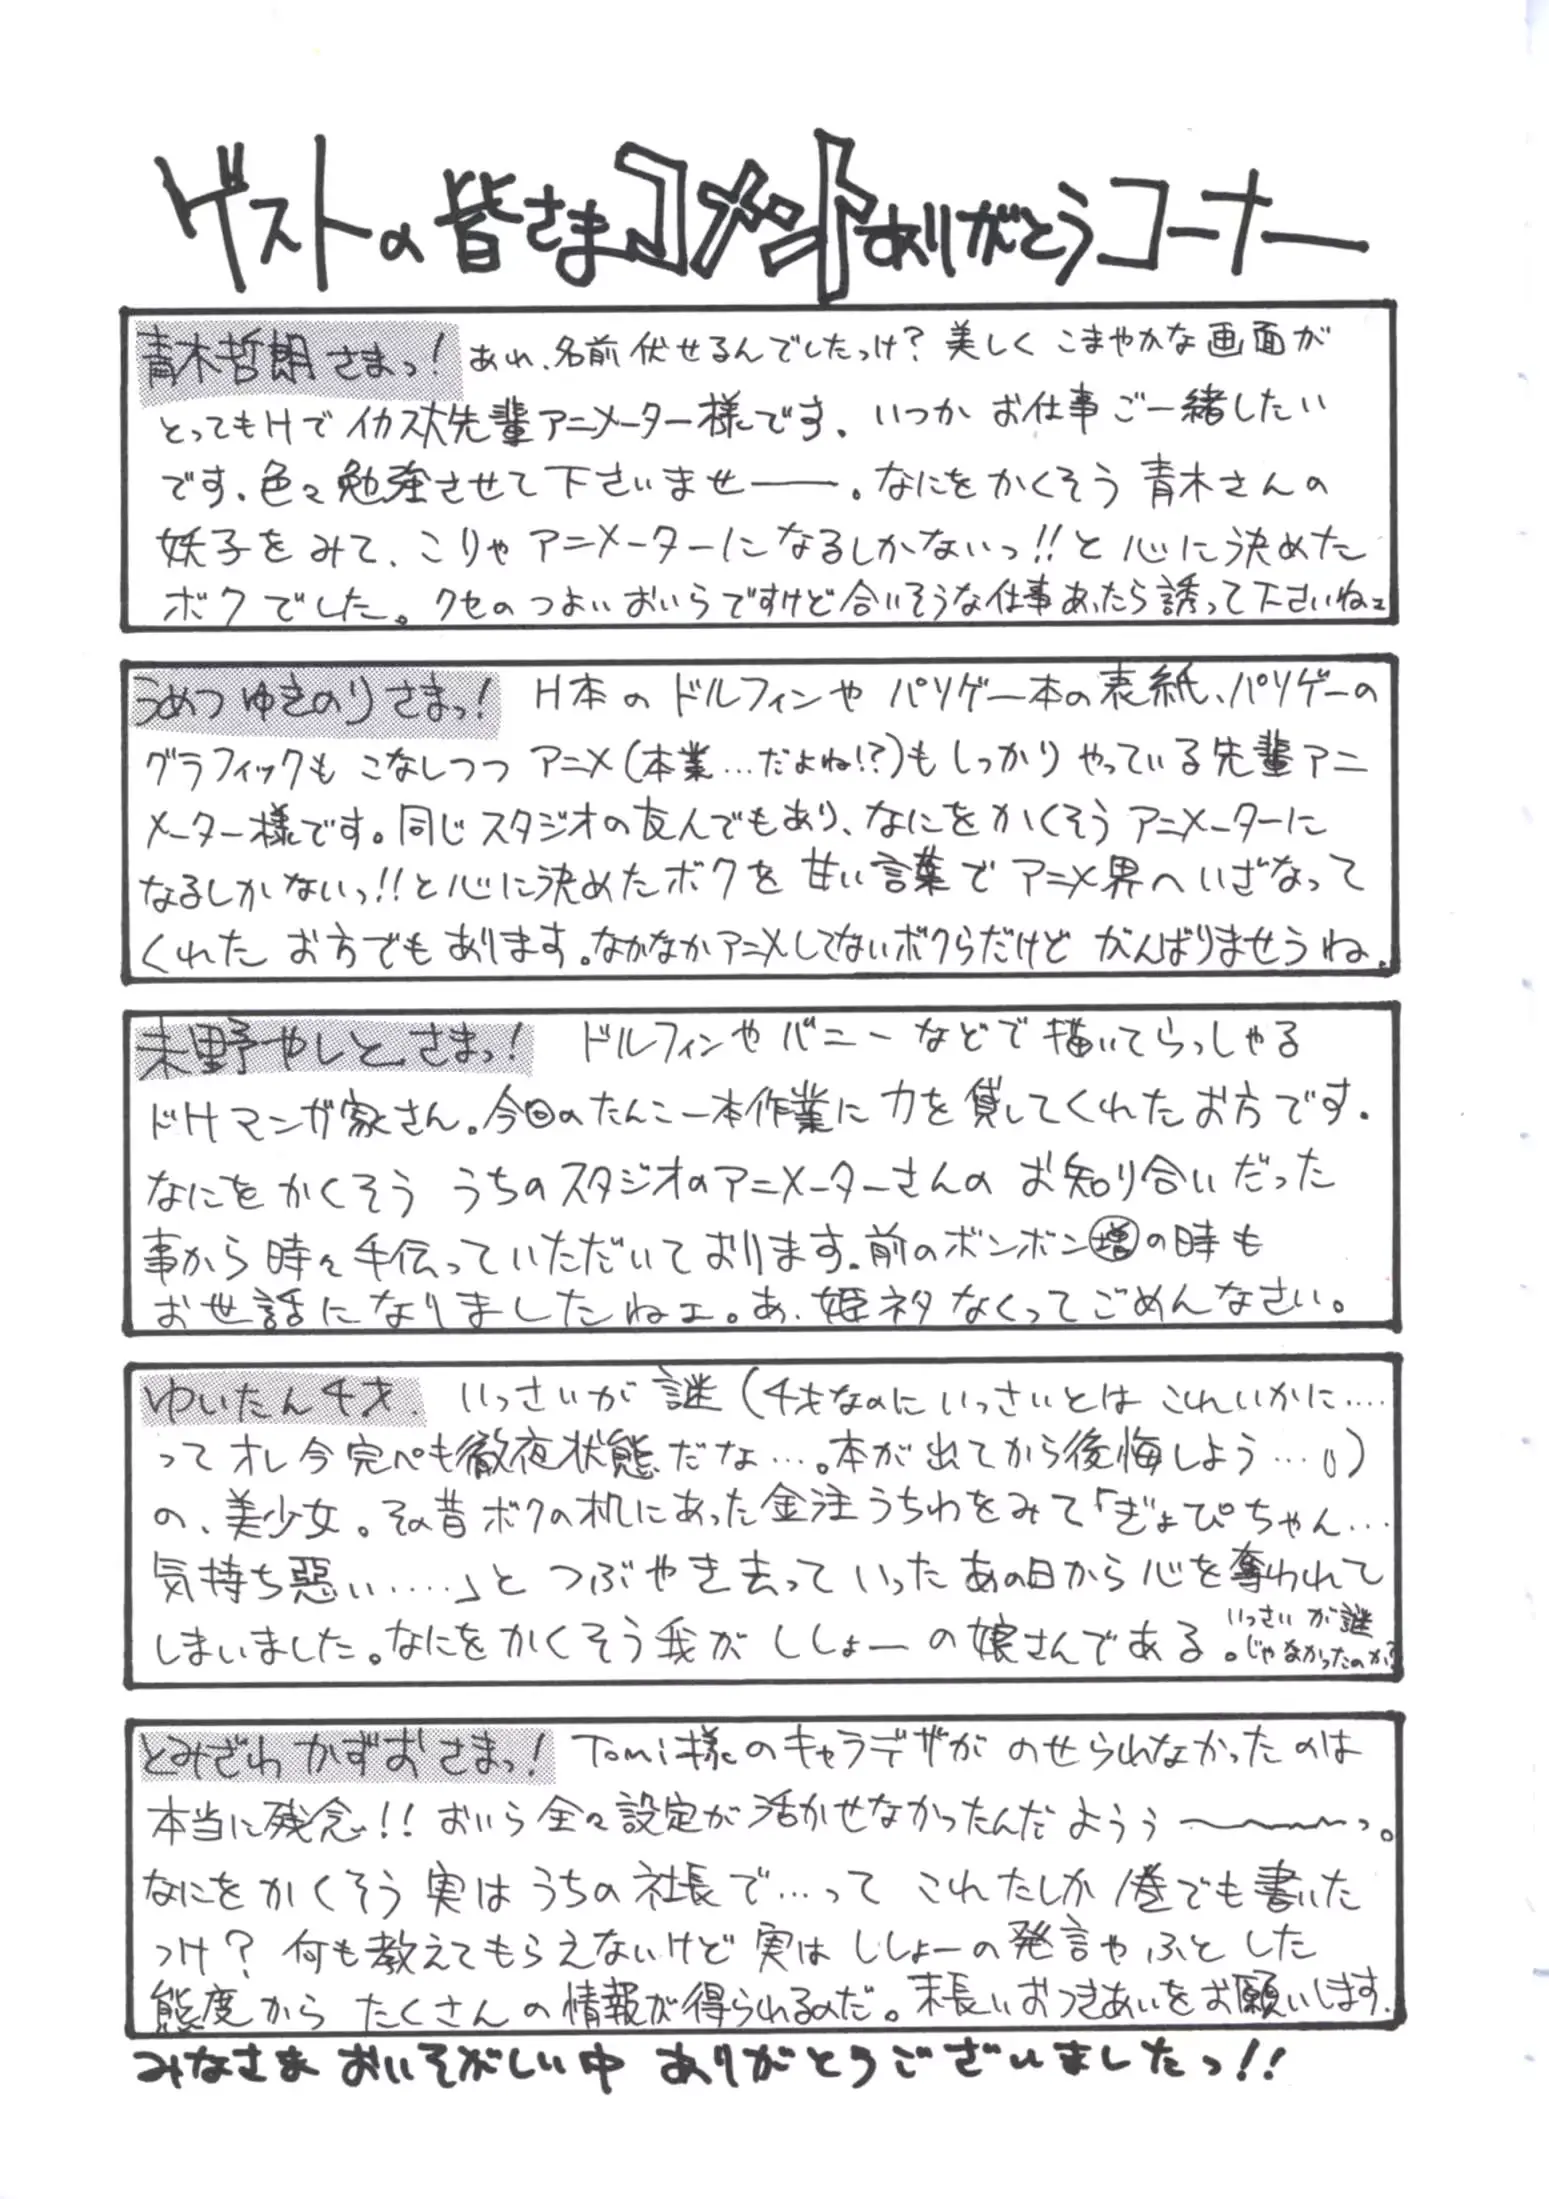 ゲストの皆さまコメントありがとうコーナー
青木哲朗さまっ! あれ、名前伏せるんでしたっけ?美しくこまやかな画面が
とってもHでイカス大先輩アニメーター様です。いつかお仕事ご一緒したい
です。色々勉強させて下さいませー。なにをかくそう青木さんの
妖子をみて、こりゃアニメーターになるしかないっ!!と心に決めた
ボクでした。クセのつよいおいらですけど合いそうな仕事あったら誘って下さいねェ
うめつゆきのりさまっ! H本のドルフィンやパソゲー本の表紙、パソゲーの
グラフィックもこなしつつアニメ(本業…だよね!?)もしっかりやっている先輩アニ
メーター様です。同じスタジオの友人でもあり、なにをかくそうアニメーターに
なるしかないっ!!と心に決めたボクを甘い言葉でアニメ界へいざなって
くれたお方でもあります。なかなかアニメしてないボクらだけどがんばりませうね。
未野やしとさまっ! ドルフィンやバニーなどで描いてらっしゃる
ドHマンガ家さん。今回のたんこー本作業に力を貸してくれたお方です。
なにをかくそううちのスタジオのアニメーターさんのお知り合いだった
事から時々手伝っていただいております。前のボンボン増の時も
お世話になりましたねェ。あ、姫ネタなくってごめんなさい。
ゆいたん4才. いっさいが謎(4才なのにいっさいとはこれいかに‥‥
ってオレ今完ペも徹夜状態だな…。本が出てから後悔しよう…)
の、美少女。その昔ボクの机にあった金注うちわをみて「ぎょぴちゃん…
気持ち悪い‥‥」とつぶやき去っていったあの日から心を奪われて
しまいました。なにをかくそう我がししょーの娘さんである。いっさいが謎
じゃなかったのか?
とみざわかずおさまっ! Tomi様のキャラデザがのせられなかったのは
本当に残念!!おいら全々設定が活かせなかったんだようぅ〜〜〜っ。
なにをかくそう実はうちの社長で…ってこれたしか1巻でも書いた
っけ?何も教えてもらえないけど実はししょーの発言やふとした
態度からたくさんの情報が得られるのだ。末長いおつきあいをお願いします。
みなさまおいそがしい中ありがとうございましたっ!!